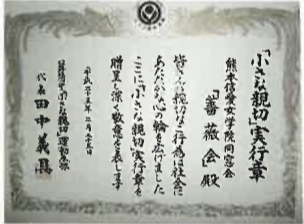 「小さな親切」実行章
熊本信愛女学院同窓会
「薔薇会」殿
皆さんの親切なご行為は社会に
あたたかい心の輪を広げました
ここに「小さな親切」実行章を
贈呈し深く敬意を表します
平成二十五年二月二十五日
「小さな親切」運動本部
代表 田中義具